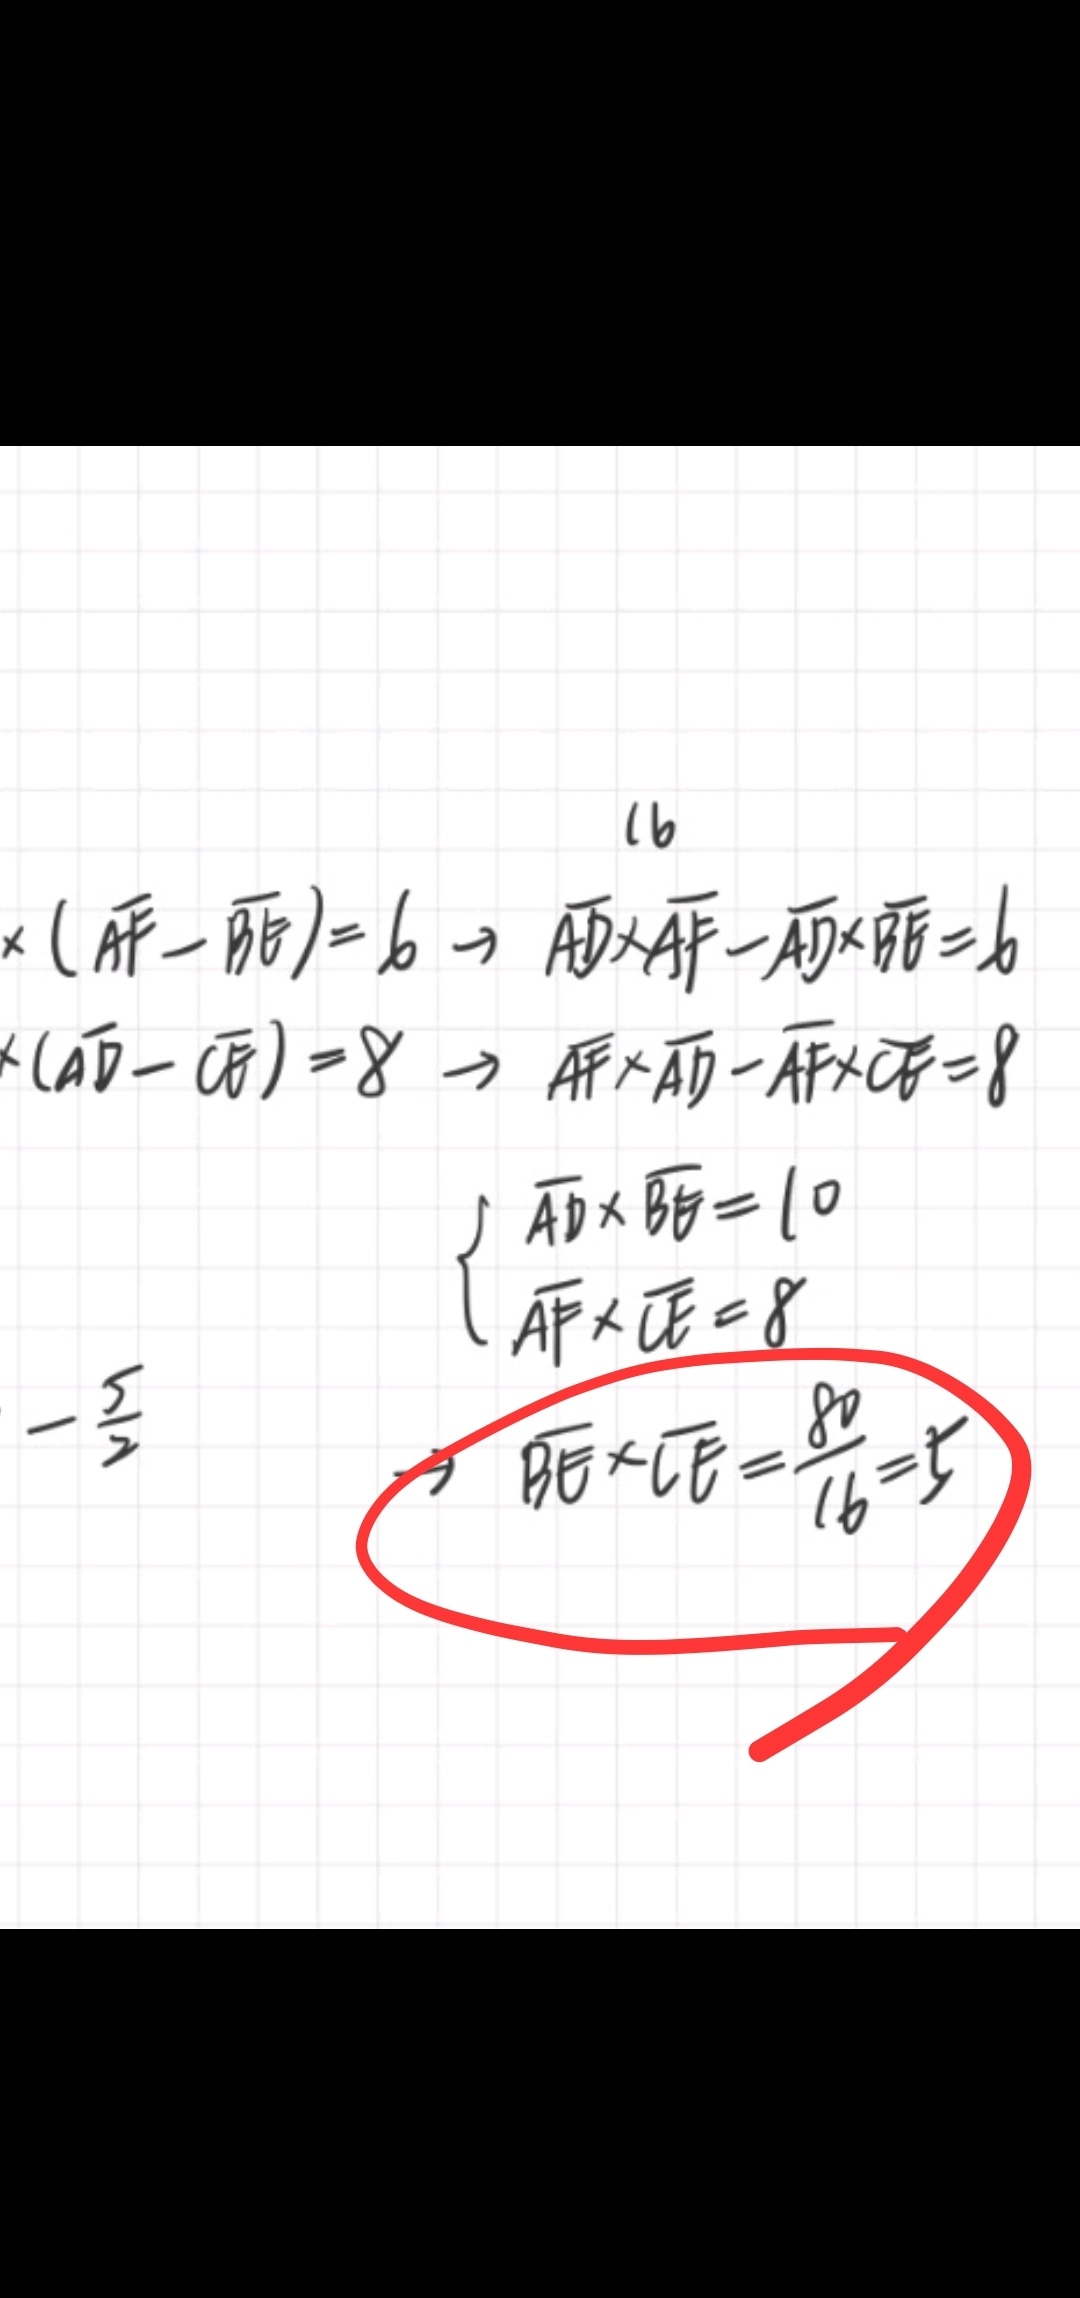 16
×(A̅F̅ − B̅E̅) = 6 → A̅D̅×A̅F̅ − A̅D̅×B̅E̅ = 6
×(A̅D̅ − C̅E̅) = 8 → A̅F̅×A̅D̅ − A̅F̅×C̅E̅ = 8
{ A̅D̅×B̅E̅ = 10
A̅F̅×C̅E̅ = 8
− 5/2 → B̅E̅×C̅E̅ = 80/16 = 5